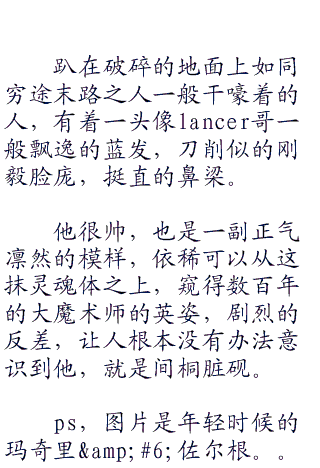 趴在破碎的地面上如同
穷途末路之人一般干嚎着的
人，有着一头像lancer哥一
般飘逸的蓝发，刀削似的刚
毅脸庞，挺直的鼻梁。
他很帅，也是一副正气
凛然的模样，依稀可以从这
抹灵魂体之上，窥得数百年
的大魔术师的英姿，剧烈的
反差，让人根本没有办法意
识到他，就是间桐脏砚。
ps，图片是年轻时候的
玛奇里&amp;#6;佐尔根。。